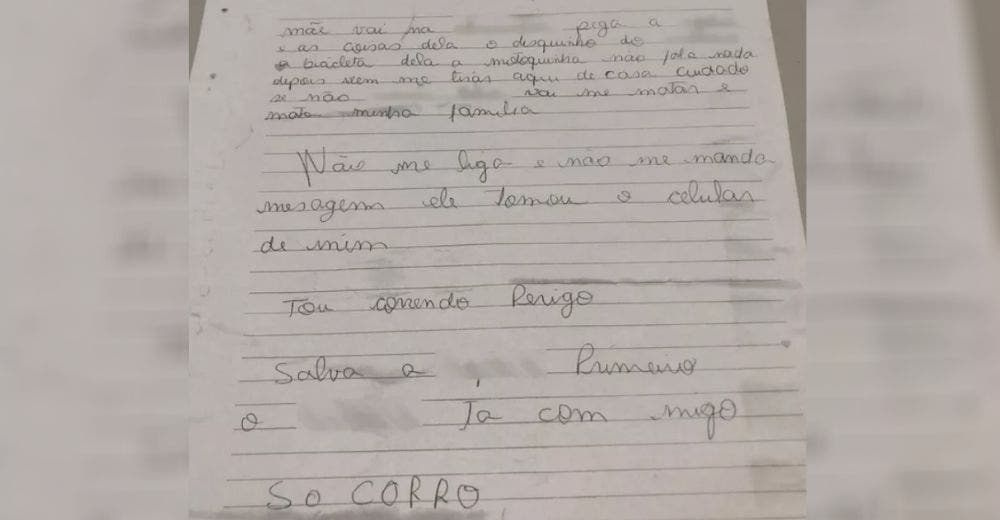 mãe vai na pega a
e as coisas dela o disquinho de
bicicleta dela a motoquinha não fala nada
depois vem me tirar aqui de casa cuidado
se não vai me matar e
mata minha família
Não me liga e não me manda
mesagem ele tomou o celular
de mim
Tou correndo Perigo
Salva a Primeiro
o Ta com migo
SO CORRO